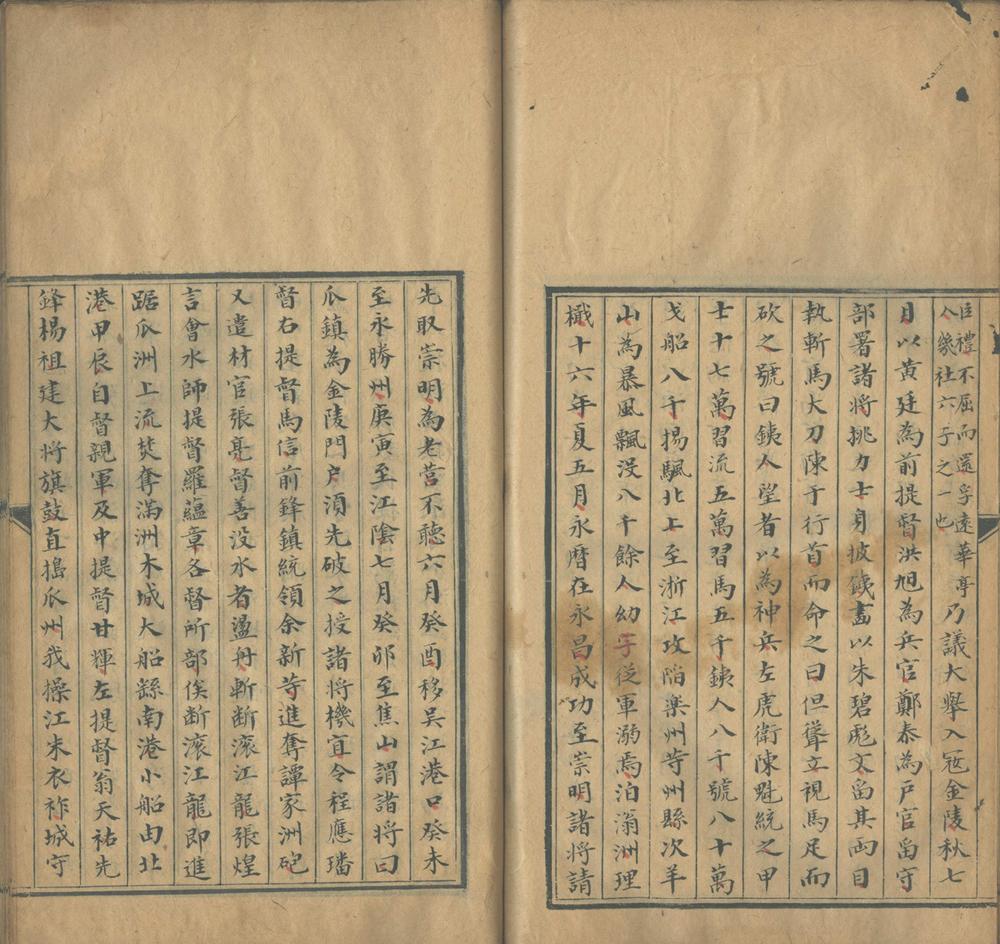 臣禮不屈而還孚遠華亭
人㡬社六子之一也
乃議大舉入冦金陵秋七
月以黃廷為前提督洪旭為兵官鄭泰為戶官畱守
部署諸將挑力士身披鐵畵以朱碧彪文畱其両目
執斬馬大刀陳于行首而命之曰但聳立視馬足而
砍之號曰鉄人望者以為神兵左虎衛陳魁統之甲
士十七萬習流五萬習馬五千鉄人八千號八十萬
戈船八千揚颿北上至浙江攻陷樂州等州縣次羊
山為暴風飄没八千餘人幼子從軍溺焉泊滃洲理
檝十六年夏五月永曆在永昌成功至崇明諸將請
先取崇明為老营不聽六月癸酉移吳江港口癸未
至永勝州庚寅至江陰七月癸卯至焦山謂諸將曰
瓜鎮為金陵門户湏先破之授諸將機宜令程應璠
督右提督馬信前鋒鎮統領余新等進奪譚家洲砲
又遣材官張亮督善没水者盪舟斬断滚江龍張煌
言會水師提督羅蘊章各督所部俟断滚江龍即進
踞瓜洲上流焚奪滿洲木城大船繇南港小船由北
港甲辰自督親軍及中提督甘輝左提督翁天祐先
鋒楊祖建大将旗鼓直搗瓜州我操江朱衣祚城守